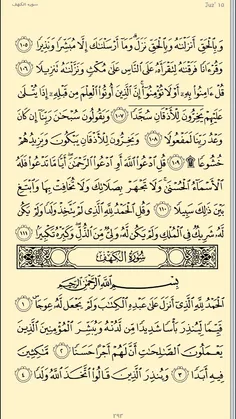 سورة الكهف
Juz' 15
وَبِٱلْحَقِّ أَنزَلْنَٰهُ وَبِٱلْحَقِّ نَزَلَ وَمَآ أَرْسَلْنَٰكَ إِلَّا مُبَشِّرًا وَنَذِيرًا ١٠٥
وَقُرْءَانًا فَرَقْنَٰهُ لِتَقْرَأَهُۥ عَلَى ٱلنَّاسِ عَلَىٰ مُكْثٍ وَنَزَّلْنَٰهُ تَنزِيلًا ١٠٦
قُلْ ءَامِنُوا۟ بِهِۦٓ أَوْ لَا تُؤْمِنُوٓا۟ إِنَّ ٱلَّذِينَ أُوتُوا۟ ٱلْعِلْمَ مِن قَبْلِهِۦٓ إِذَا يُتْلَىٰ
عَلَيْهِمْ يَخِرُّونَ لِلْأَذْقَانِ سُجَّدًا ١٠٧ وَيَقُولُونَ سُبْحَٰنَ رَبِّنَآ إِن كَانَ
وَعْدُ رَبِّنَا لَمَفْعُولًا ١٠٨ وَيَخِرُّونَ لِلْأَذْقَانِ يَبْكُونَ وَيَزِيدُهُمْ
خُشُوعًا ١٠٩ قُلِ ٱدْعُوا۟ ٱللَّهَ أَوِ ٱدْعُوا۟ ٱلرَّحْمَٰنَ أَيًّا مَّا تَدْعُوا۟ فَلَهُ
ٱلْأَسْمَآءُ ٱلْحُسْنَىٰ وَلَا تَجْهَرْ بِصَلَاتِكَ وَلَا تُخَافِتْ بِهَا وَٱبْتَغِ
بَيْنَ ذَٰلِكَ سَبِيلًا ١١٠ وَقُلِ ٱلْحَمْدُ لِلَّهِ ٱلَّذِى لَمْ يَتَّخِذْ وَلَدًا وَلَمْ يَكُن
لَّهُۥ شَرِيكٌ فِى ٱلْمُلْكِ وَلَمْ يَكُن لَّهُۥ وَلِىٌّ مِّنَ ٱلذُّلِّ وَكَبِّرْهُ تَكْبِيرًا ١١١
سُورَةُ الكَهْفِ
بِسْمِ ٱللَّهِ ٱلرَّحْمَٰنِ ٱلرَّحِيمِ
ٱلْحَمْدُ لِلَّهِ ٱلَّذِىٓ أَنزَلَ عَلَىٰ عَبْدِهِ ٱلْكِتَٰبَ وَلَمْ يَجْعَل لَّهُۥ عِوَجَا ١
قَيِّمًا لِّيُنذِرَ بَأْسًا شَدِيدًا مِّن لَّدُنْهُ وَيُبَشِّرَ ٱلْمُؤْمِنِينَ ٱلَّذِينَ
يَعْمَلُونَ ٱلصَّٰلِحَٰتِ أَنَّ لَهُمْ أَجْرًا حَسَنًا ٢ مَّٰكِثِينَ
فِيهِ أَبَدًا ٣ وَيُنذِرَ ٱلَّذِينَ قَالُوا۟ ٱتَّخَذَ ٱللَّهُ وَلَدًا ٤
٢٩٣